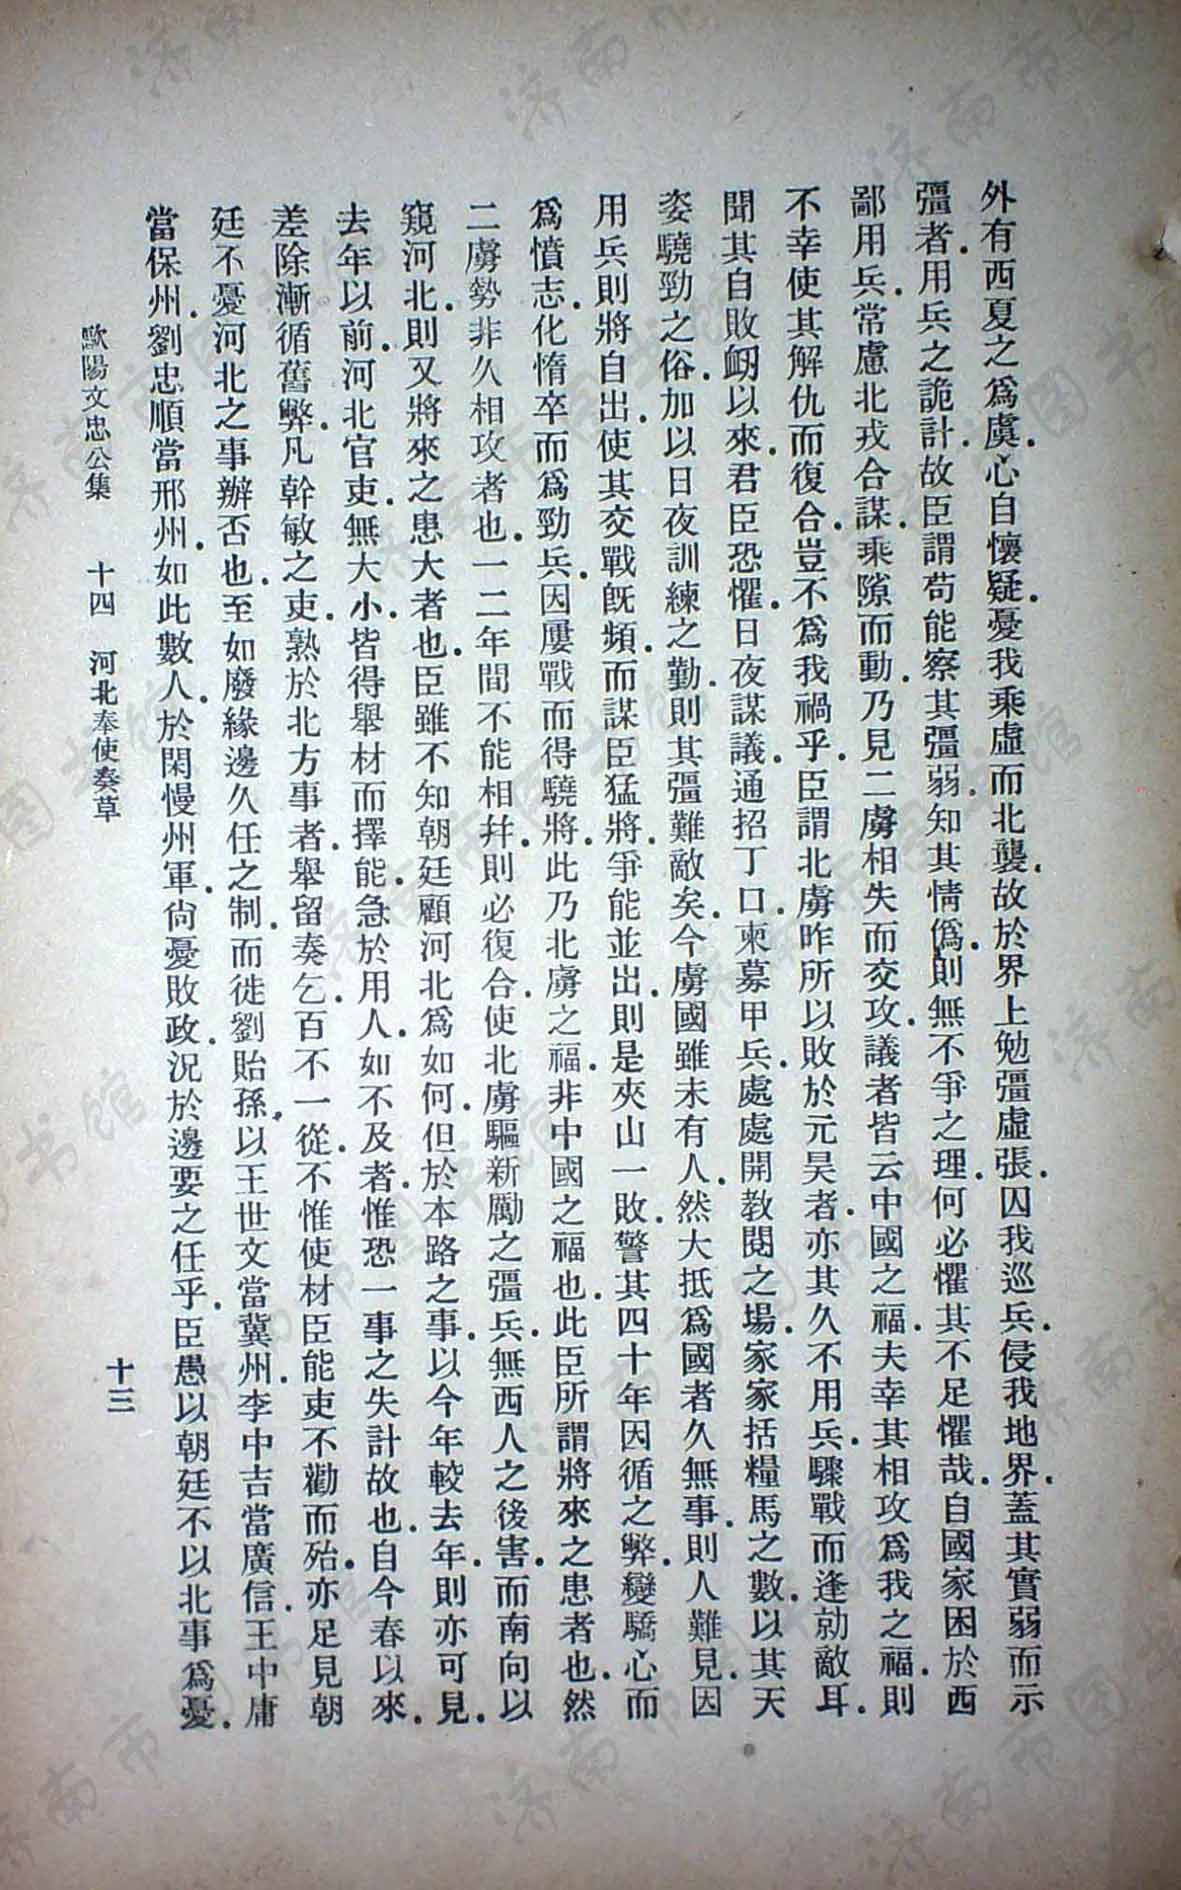 外有西夏之爲虞.心自懷疑.憂我乘虛而北襲.故於界上勉彊虛張.囚我巡兵.侵我地界.蓋其實弱而示
彊者.用兵之詭計.故臣謂苟能察其彊弱.知其情僞.則無不爭之理.何必懼其不足懼哉.自國家困於西
鄙用兵.常慮北戎合謀.乘隙而動.乃見二虜相失而交攻.議者皆云中國之福.夫幸其相攻爲我之福.則
不幸使其解仇而復合.豈不爲我禍乎.臣謂北虜昨所以敗於元昊者.亦其久不用兵.驟戰而逢勍敵耳.
聞其自敗衂以來.君臣恐懼.日夜謀議.通招丁口.柬募甲兵.處處開教閱之場.家家括糧馬之數.以其天
姿驍勁之俗.加以日夜訓練之勤.則其彊難敵矣.今虜國雖未有人.然大抵爲國者久無事.則人難見.因
用兵.則將自出.使其交戰旣頻.而謀臣猛將.爭能並出.則是夾山一敗.警其四十年因循之弊.變驕心而
爲憤志.化惰卒而爲勁兵.因屢戰而得驍將.此乃北虜之福.非中國之福也.此臣所謂將來之患者也.然
二虜勢非久相攻者也.一二年間不能相幷.則必復合.使北虜驅新勵之彊兵.無西人之後害.而南向以
窺河北.則又將來之患大者也.臣雖不知朝廷顧河北爲如何.但於本路之事.以今年較去年.則亦可見.
去年以前.河北官吏.無大小.皆得舉材而擇能.急於用人.如不及者.惟恐一事之失計故也.自今春以來.
差除漸循舊弊.凡幹敏之吏.熟於北方事者.舉留奏乞.百不一從.不惟使材臣能吏不勸而殆.亦足見朝
廷不憂河北之事辦否也.至如廢緣邊久任之制.而徙劉貽孫.以王世文當冀州.李中吉當廣信.王中庸
當保州.劉忠順當邢州.如此數人.於閑慢州軍.尙憂敗政.況於邊要之任乎.臣愚以朝廷不以北事爲憂.
歐陽文忠公集 十四 河北奉使奏草 十三
济南市图书馆